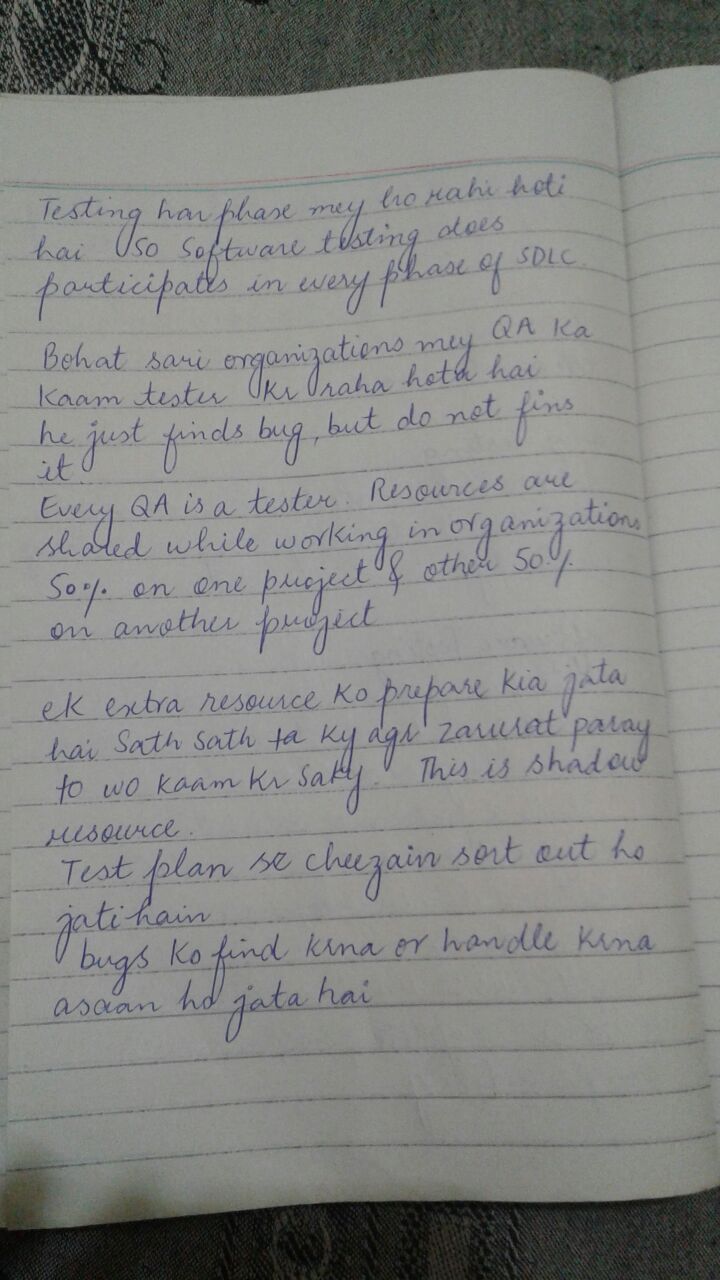 Testing har phase mey ho rahi hoti
hai So Software testing does
participates in every phase of SDLC.
Bohat sari organizations mey QA Ka
Kaam tester Kr raha hota hai
he just finds bug, but do not fins
it
Every QA is a tester. Resources are
shared while working in organizations
50% on one project & other 50%
on another project
ek extra resource Ko prepare Kia jata
hai Sath Sath ta Ky agr zarurat paray
to wo Kaam Kr Saky. This is shadow
resource.
Test plan se cheezain sort out ho
jati hain
bugs Ko find krna or handle krna
asaan ho jata hai